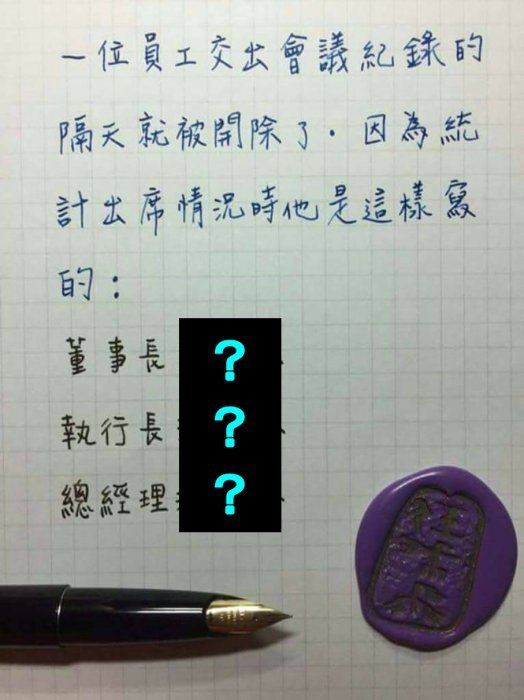 一位員工交出會議紀錄的
隔天就被開除了.因為統
計出席情況時他是這樣寫
的:
董事長?
執行長?
總經理?